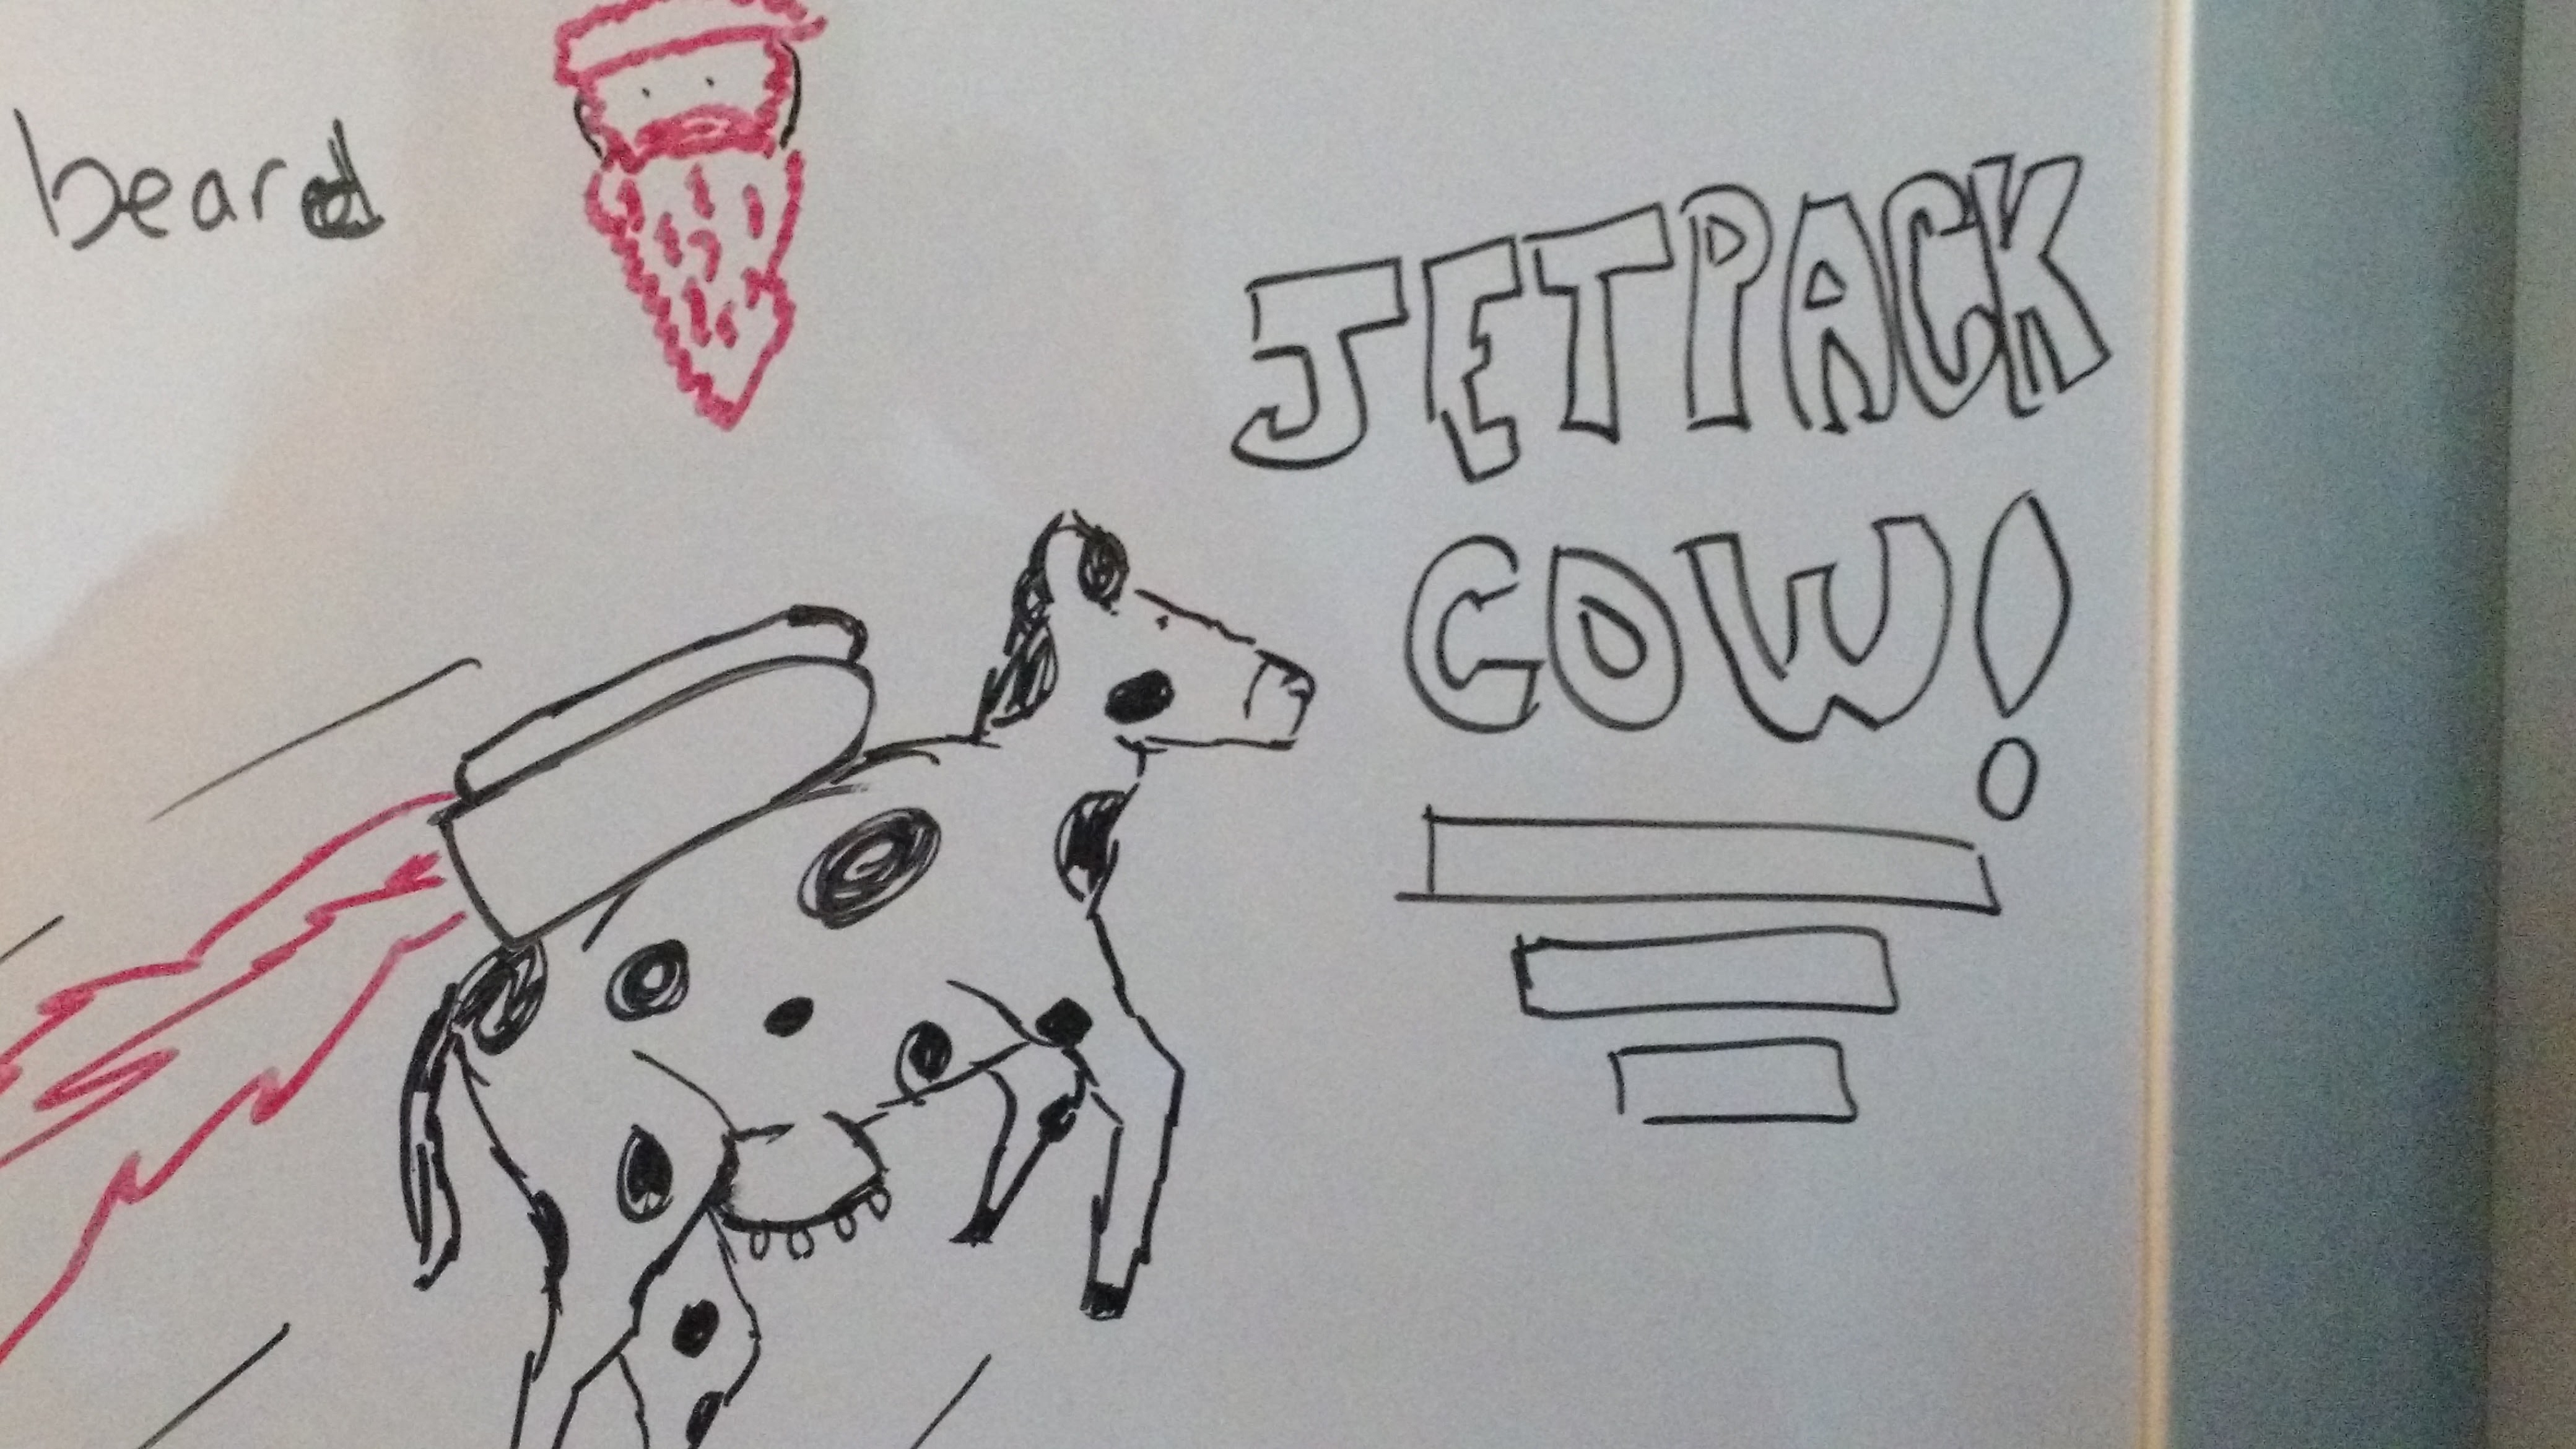 beard
JETPACK
COW!